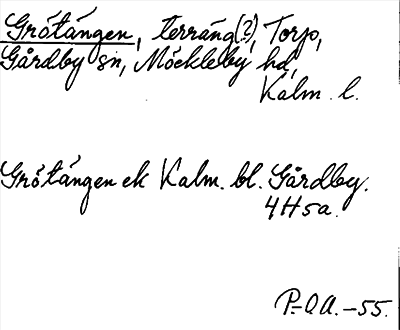 Grötängen, terräng(?), Torp,
Gårdby sn, Möckleby hd,
Kalm. l.
Grötängen ek Kalm. bl. Gårdby.
4H5a.
P.-O.A. -55.